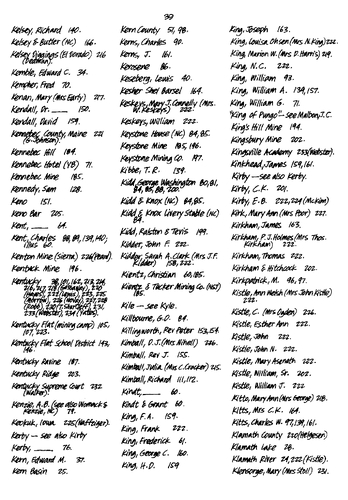 39
Kelsey, Richard 140.
Kelsey & Butler (NC) 166.
Kelsey Diggings (El Dorado) 216
(Dedman).
Kemble, Edward C. 34.
Kempher, Fred 70.
Kenan, Mary (Mrs Early) 217.
Kendall, Dr. ____ 150.
Kendall, David 159.
Kennebec County, Maine 221
(G-Johnson).
Kennebec Hill 184.
Kennebec Hotel (YB) 71.
Kennebec Mine 185.
Kennedy, Sam 128.
Keno 151.
Keno Bar 205.
Kent, ____ 64.
Kent, Charles 88, 89, 139, 140;
illus 60.
Kenton Mine (Sierra) 226
Kentuck Mine 196.
Kentucky 38, 101, 162, 213, 214,
Kentucky Flat (mining camp) 105,
107, 223.
Kentucky Flat School District 143,
146.
Kentucky Ravine 187.
Kentucky Ridge 203.
Kentucky Supreme Court 232
(Walker).
Kenzie, A.B. (see also Womack &
Kenzie, NC) 79.
Keokuk, Iowa 225 (Haffeiger).
Kerby — see also Kirby
Kerby, ____ 76.
Kern, Edward M. 37.
Kern Basin 25.
Kern County 57, 98.
Kerns, Charles 90.
Kerns, J. 161.
Kerosene 86.
Keseberg, Lewis 40.
Kesher Shel Barzel 164.
Keskeys, Mary J. Connelly (Mrs.
W. Keskeys) 222.
Keskeys, William 222.
Keystone House (NC) 84, 85.
Keystone Mine 185, 196.
Keystone Mining Co. 197.
Kibbe, T. R. 139.
Kidd, George Washington 80, 81,
84, 85, 88, 200.
Kidd & Knox (NC) 84, 85.
Kidd & Knox Livery Stable (NC)
84.
Kidd, Ralston & Tevis 199.
Kidder, John F. 222.
Kidder, Sarah A. Clark (Mrs J.F.
Kidder) 158, 222.
Kientz, Christian 60, 185.
Kientz & Tacker Mining Co. (NSJ)
185.
Kile — see Kyle.
Kilbourne, G.Q. 84.
Killingworth, Rev Peter 153, 154.
Kimball, D.J. (Mrs Nihell) 226.
Kimball, Rev J. 155.
Kimball, Julia (Mrs C. Crocker) 215.
Kimball, Richard 111, 112.
Kindt, ____ 60.
Kindt & Grant 60.
King, F. A. 159.
King, Frank 222.
King, Frederick 61.
King, George C. 160.
King, H.D. 159
King, Joseph 163.
King, Louisa Ohsen (Mrs N. King) 222.
King, Marion W. (Mrs D. Harris) 219.
King, N.C. 222.
King, William 93.
King, William A. 139, 157.
King, William G. 71.
King's Hill Mine 194.
Kingsbury Mine 202.
Kingsville Academy 233 (Webster).
Kinkhead, James 159, 161.
Kirby — see also Kerby.
Kirby, C.K. 201.
Kirby, E.B. 222, 224 (McKim)
Kirk, Mary Ann (Mrs Poor) 227.
Kirkham, James 163.
Kirkham, P.J. Holmes (Mrs Thos.
Kirkham) 222.
Kirkham, Thomas 222.
Kirkham & Hitchcock 202.
Kirkpatrick, M. 96, 97.
Kistle, Ann Welsh (Mrs John Kistle)
222.
Kistle, C. (Mrs Ogden) 226.
Kistle, Esther Ann 222.
Kistle, John 222.
Kistle, John N. 222.
Kistle, Mary Asenath 222.
Kistle, William, Sr. 202.
Kistle, William J. 222
Kitto, Mary Ann (Mrs George) 218.
Kitts, Mrs C.K. 164.
Kitts, Charles W. 97, 139, 161.
Klamath County 220 (Helgesen)
Klamath Lake 28.
Klamath River 24, 222 (Kistle).
Klensorge, Mary (Mrs Stoll) 231.